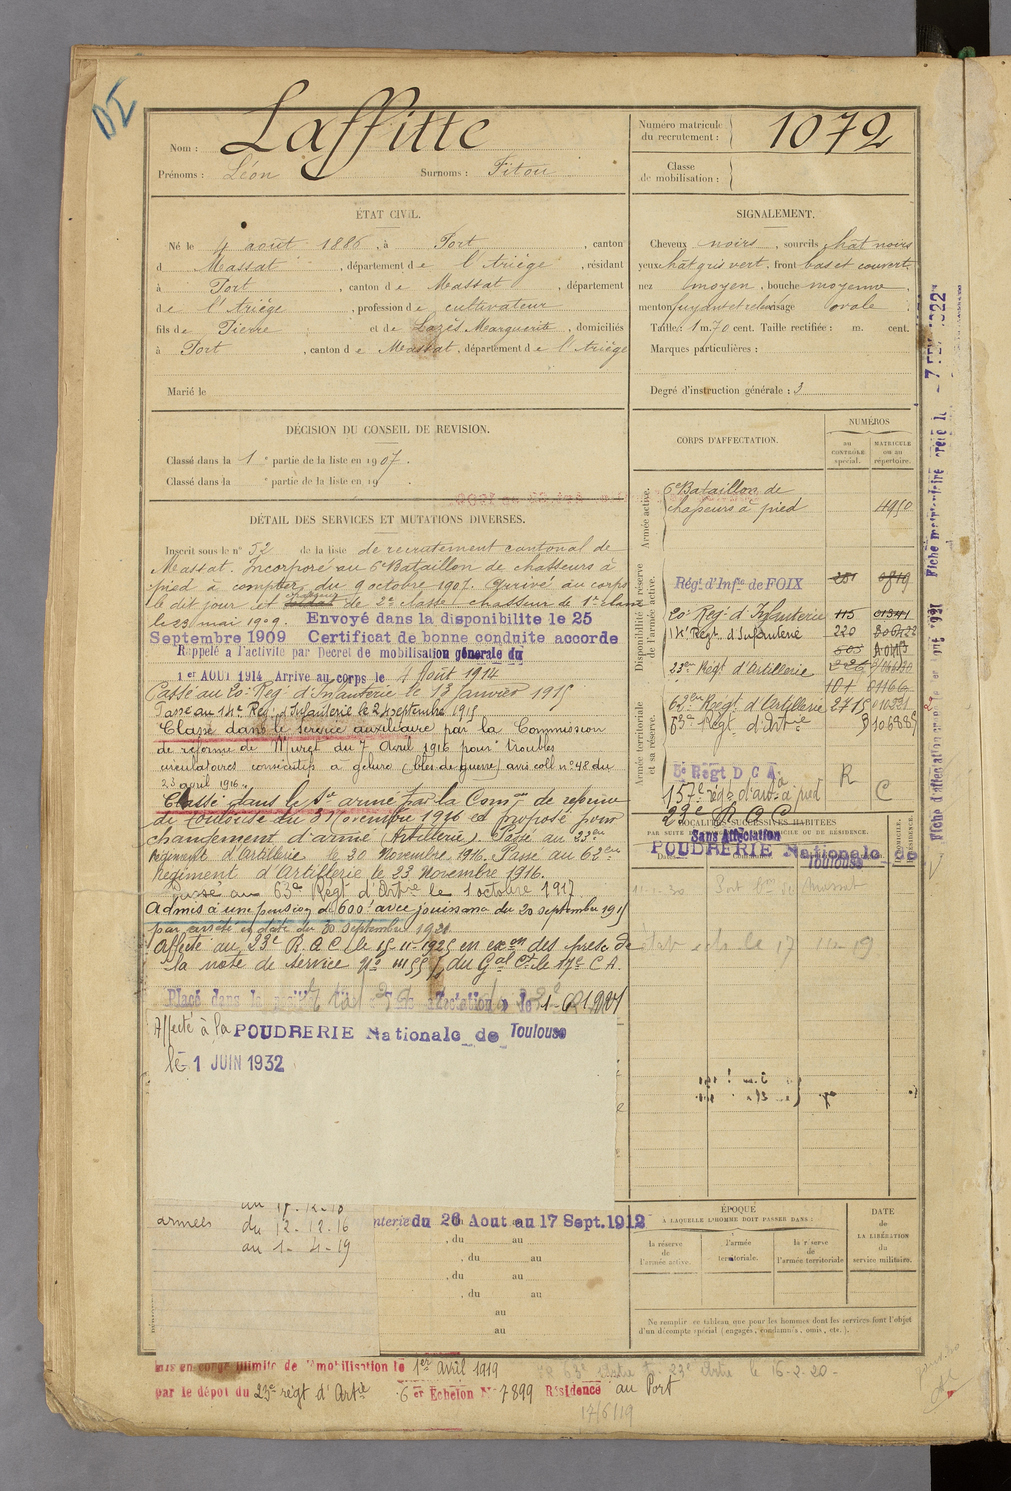 DI
Nom : Laffitte
Prénoms : Léon Surnoms : Fitou
Numéro matricule du recrutement : 1072
Classe de mobilisation :
ÉTAT CIVIL.
Né le 4 août 1886, à Port, canton
d Massat, département de l'Ariège, résidant
à Port, canton de Massat, département
de l'Ariège, profession de cultivateur
fils de Pierre et de Lazès Marguerite, domiciliés
à Port, canton de Massat, département de l'Ariège
Marié le
SIGNALEMENT.
Cheveux noirs, sourcils chat noirs
yeux chat gris vert, front bas et couvert,
nez moyen, bouche moyenne,
menton fuyant et relevé visage ovale.
Taille : 1 m. 70 cent. Taille rectifiée : m. cent.
Marques particulières :
Degré d'instruction générale : 3
DÉCISION DU CONSEIL DE REVISION.
Classé dans la 1e partie de la liste en 1907.
Classé dans la e partie de la liste en 19
DÉTAIL DES SERVICES ET MUTATIONS DIVERSES.
Inscrit sous le n° 52 de la liste de recrutement cantonal de
Massat. Incorporé au 6e Bataillon de chasseurs à
pied à compter du 9 octobre 1907. Arrivé au corps
le dit jour et soldat chasseur de 2e classe chasseur de 1re classe
le 23 mai 1909. Envoyé dans la disponibilite le 25
Septembre 1909 Certificat de bonne conduite accorde
Rappelé a l'activité par Decret de mobilisation générale du
1er AOUT 1914 Arrivé au corps le 4 Août 1914
Passé au 20e Reg. d'Infanterie le 13 Janvier 1915
Passé au 14e Reg. d'Infanterie le 24 septembre 1915
Classé dans le service auxiliaire par la Commission
de réforme de Muret du 7 Avril 1916 pour troubles
circulatoires consécutifs à gelure (bles. de guerre) avis coll n°48 du
23 avril 1916.
Classé dans le Sce armé par la Comon de réforme
de Toulouse du 3 Novembre 1916 et proposé pour
changement d'arme (Artillerie). Passé au 23ème
Régiment d'Artillerie le 20 Novembre 1916. Passé au 62ème
Régiment d'Artillerie le 23 Novembre 1916.
Passé au 63e Régt d'Artrie le 1 octobre 1917
Admis à une pension de 600f avec jouissance du 20 septembre 1915
par arrêté en date du 30 septembre 1920
Affecté au 23e R.A.C. le 15-11-1925 en exon des presc. de
la note de service N° 11155/1 du Gal Ct le 17e C A.
Placé dans la 1927
Affecté à la POUDRERIE Nationale de Toulouse
le 1 JUIN 1932
au 17-12-18
armées du 12-12-16
au 1-4-19
nterie du 26 Aout au 17 Sept. 1912
, du au
, du au
, du au
, du au
au
au
CORPS D'AFFECTATION.
NUMÉROS
au CONTRÔLE spécial.
MATRICULE ou au répertoire.
Armée active.
6e Bataillon de
chasseurs à pied 4950
Disponibilité et réserve de l'armée active.
Régt d'Infie de FOIX
20e Reg. d'Infanterie 115
14e Regt d'Infanterie 220
23ème Régt d'Artillerie
101
Armée territoriale et sa réserve.
62ème Régt d'Artillerie 2715
63e Régt d'Artrie
5e Régt D C A
157e régt d'arti à pied
R C
23e R A C
LOCALITÉS SUCCESSIVES HABITÉES
Sans Affectation
POUDRERIE Nationale de
Toulouse
Fiche matriculaire créée le - 7 FEV 1922
ÉPOQUE
À LAQUELLE L'HOMME DOIT PASSER DANS :
la réserve de l'armée active.
l'armée territoriale.
la réserve de l'armée territoriale
DATE de LA LIBÉRATION du service militaire.
Ne remplir ce tableau que pour les hommes dont les services font l'objet
d'un décompte spécial (engagés, condamnés, omis, etc.).
Mis en congé illimité de démobilisation le 1er avril 1919
par le dépot du 23e régt d'Artie 6er Echelon N° 7899 Résidence au Port
63e Artie 23e Artie le 16-2-20
17/6/19